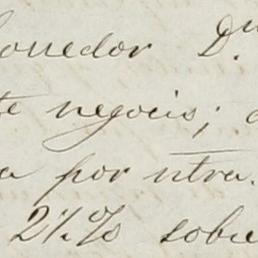 onedor Dn.
te negocio;
a por ntra.
2½% sobre